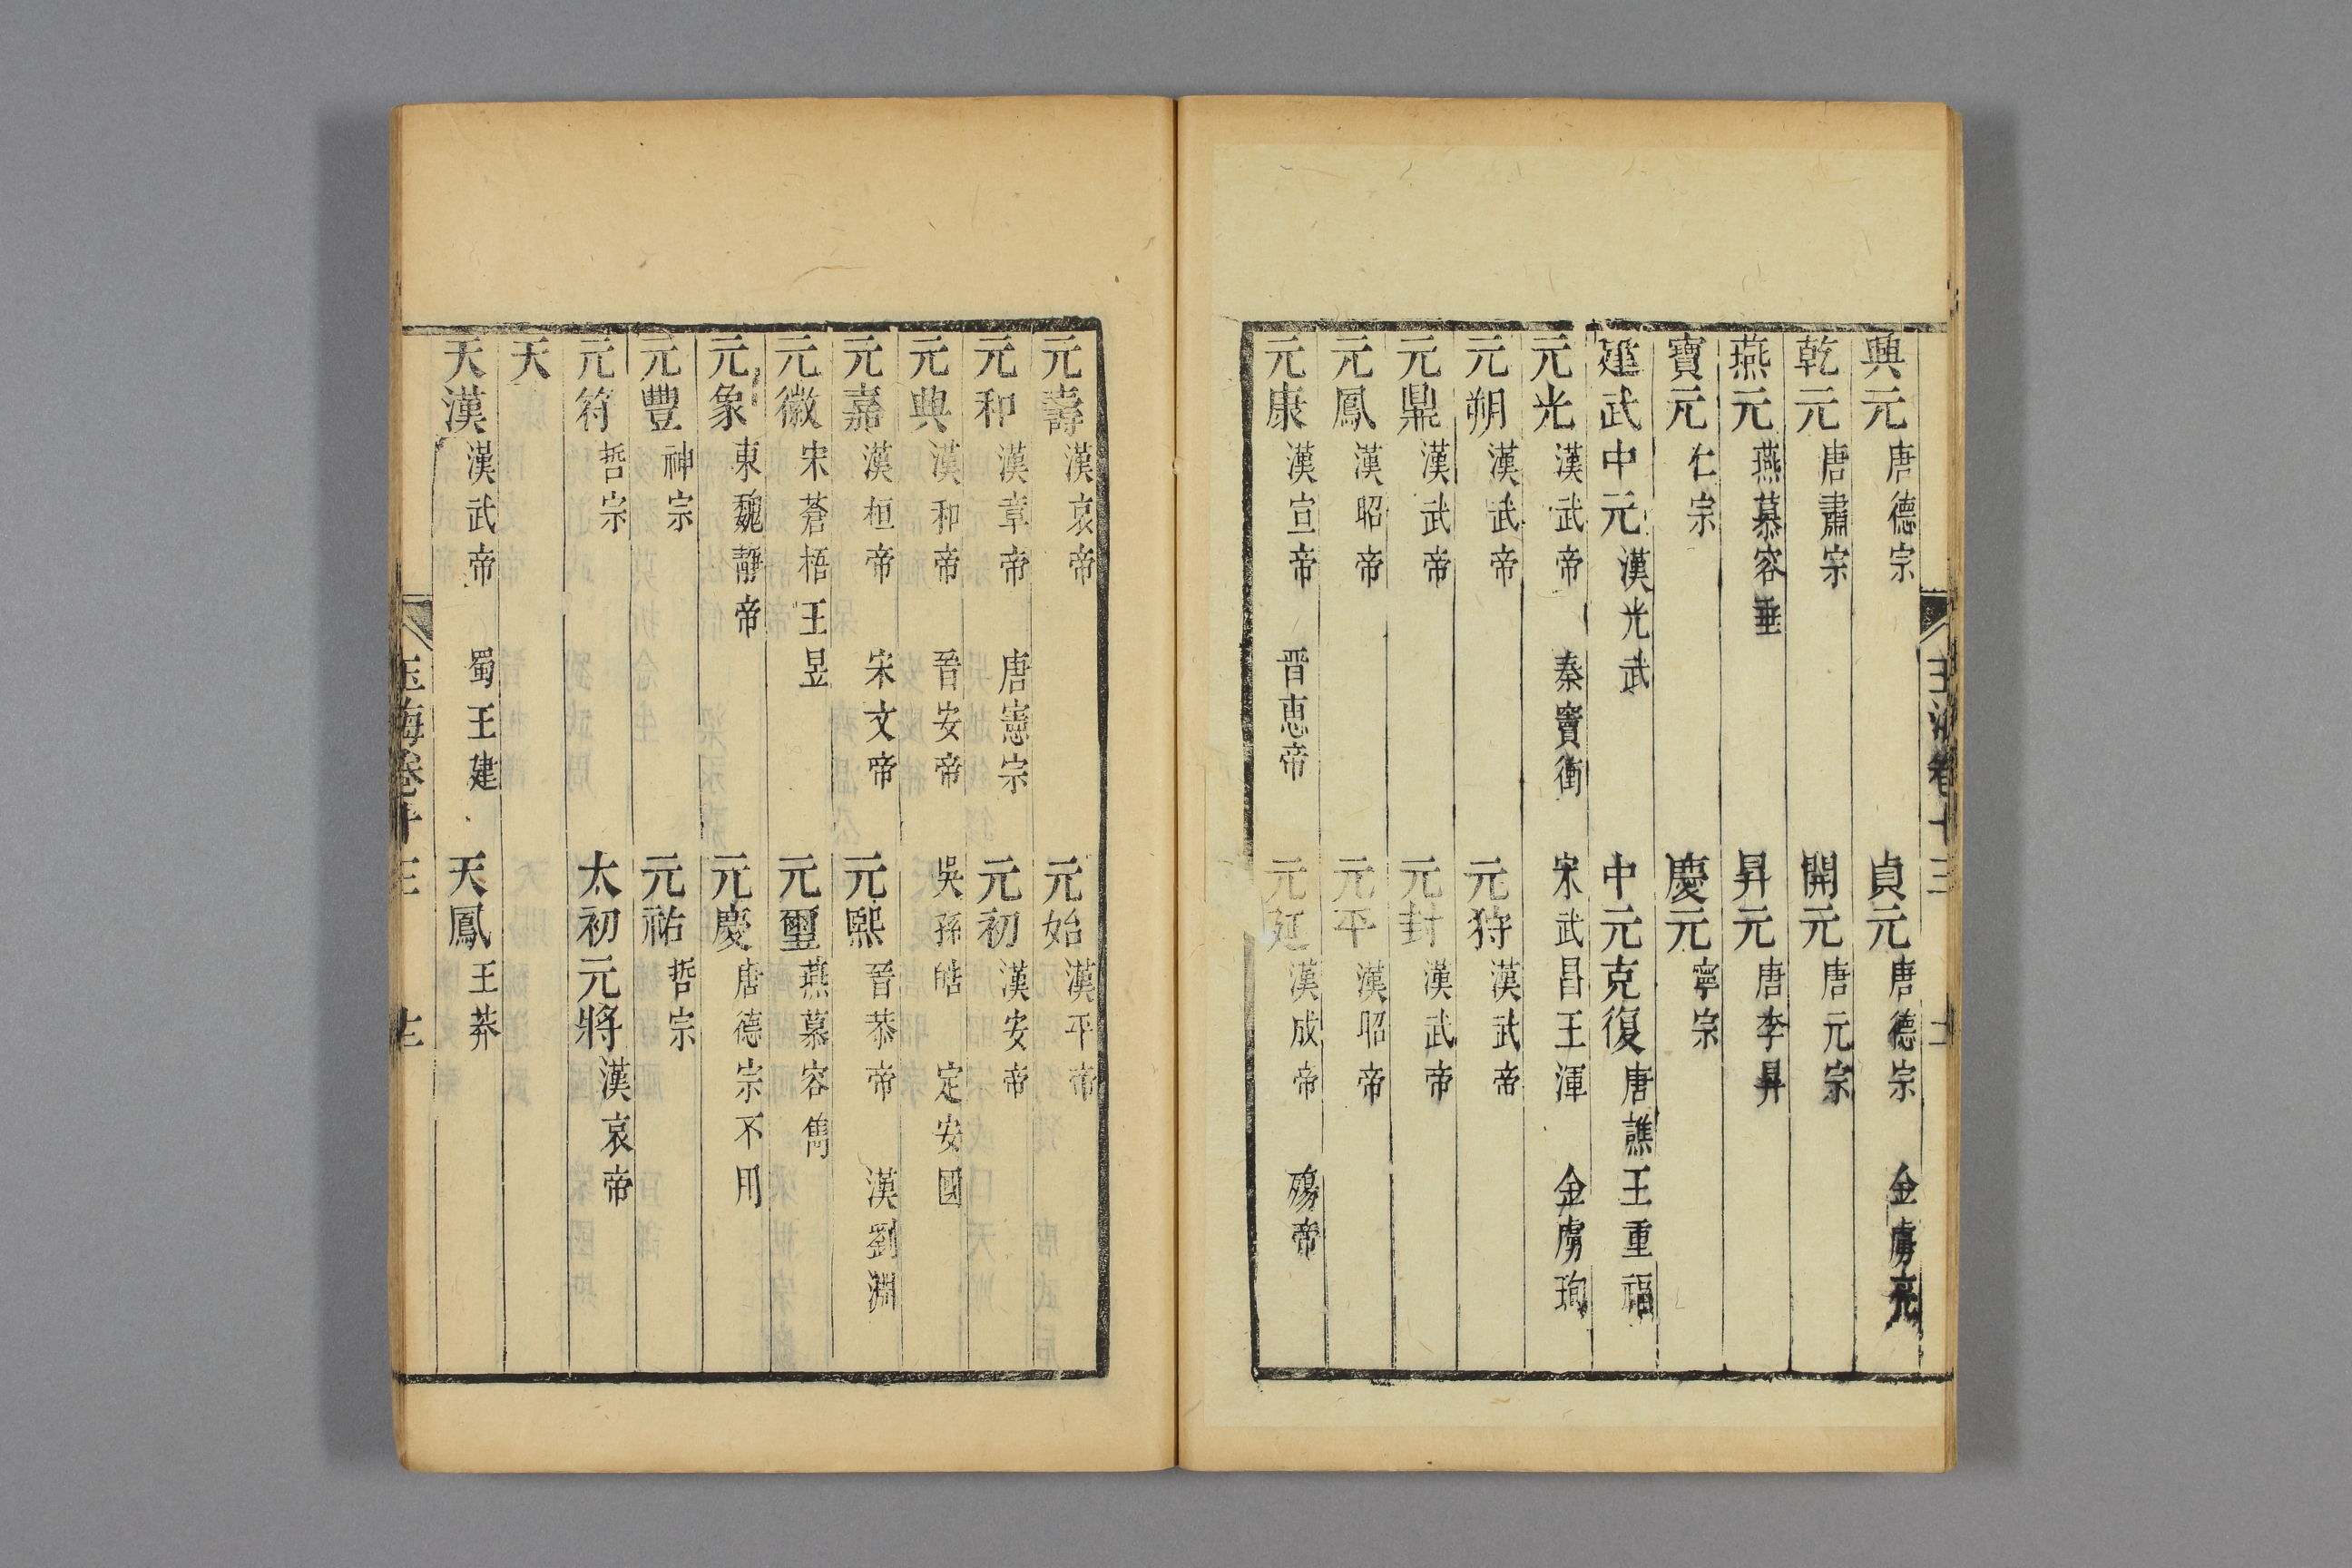 興元唐德宗 貞元唐德宗 金虜亮
乾元唐肅宗 開元唐元宗
燕元燕慕容垂 昇元唐李昇
寶元仁宗 慶元寧宗
建武中元漢光武 中元克復唐譙王重福
元光漢武帝 秦竇衝 宋武昌王渾 金虜珣
元朔漢武帝 元狩漢武帝
元鼎漢武帝 元封漢武帝
元鳳漢昭帝 元平漢昭帝
元康漢宣帝 晉惠帝 元延漢成帝 殤帝
元壽漢哀帝 元始漢平帝
元和漢章帝 唐憲宗 元初漢安帝
元興漢和帝 晉安帝 吳孫皓 定安國
元嘉漢桓帝 宋文帝 元熙晉恭帝 漢劉淵
元徽宋蒼梧王昱 元璽燕慕容雋
元象東魏靜帝 元慶唐德宗不用
元豐神宗 元祐哲宗
元符哲宗 太初元將漢哀帝
天
天漢漢武帝 蜀王建 天鳳王莽
玉海卷十三